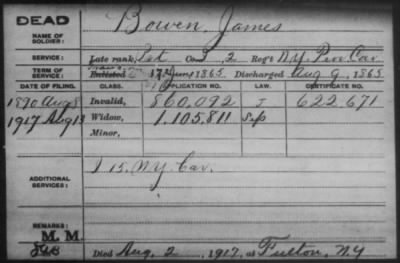 DEAD
NAME OF SOLDIER:
Bowen, James
SERVICE:
Late rank, Pvt Co. 2 Reg't N.Y. Prov Cav
TERM OF SERVICE:
Enlisted 17 June 1865. Discharged Aug 9, 1865
DATE OF FILING. CLASS. APPLICATION NO. LAW. CERTIFICATE NO.
1890 Aug 8 Invalid, 860,092 J 622,671
1917 Aug 13 Widow, 1,105,811 Sep
Minor,
ADDITIONAL SERVICES:
I 15. N.Y. Cav.
REMARKS:
M. M.
Died Aug. 2, 1917, at Fulton, N.Y